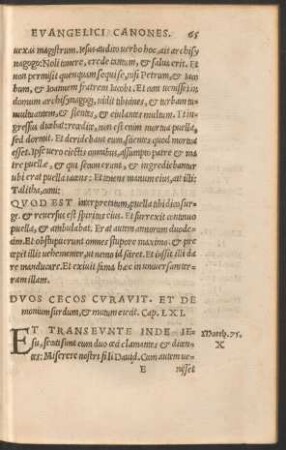 EVANGELICI CANONES. 65
uexas magistrum. Iesus audito uerbo hoc, ait archisy
nagogo: Noli timere, crede tantum, & salua erit. Et
non permisit quenquam sequi se, nisi Petrum, & Iaco
bum, & Ioannem fratrem Iacobi. Et cum uenisset in
domum archisynagogi, uidit tibicines, & turbam tu
multuantem, & flentes, & eiulantes multum. Et in
gressus dicebat: recedite, non est enim mortua puella,
sed dormit. Et deridebant eum, scientes quod mortua
esset. Ipse uero eiectis omnibus, assumpto patre & ma
tre puellæ, & qui secum erant, & ingrediebatur
ubi erat puella iacens: Et tenens manum eius, ait illi:
Talitha, cumi:
QVOD EST interpretatum, puella tibi dico sur
ge. & reuersus est spiritus eius. Et surrexit continuo
puella, & ambulabat. Erat autem annorum duode=
cim. Et obstupuerunt omnes stupore maximo: & præ
cepit illis uehementer, ut nemo id sciret. Et iussit illi da
re manducare. Et exiuit fama hæc in uniuersam ter=
ram illam.
DVOS CECOS CVRAVIT. ET DE
monium surdum, & mutum eiecit. Cap. LXI.
ET TRANSEVNTE INDE IE= Matth. 75.
su, secuti sunt eum duo cæci clamantes & dicen= X
tes: Miserere nostri fili Dauid. Cum autem ue=
E nisset